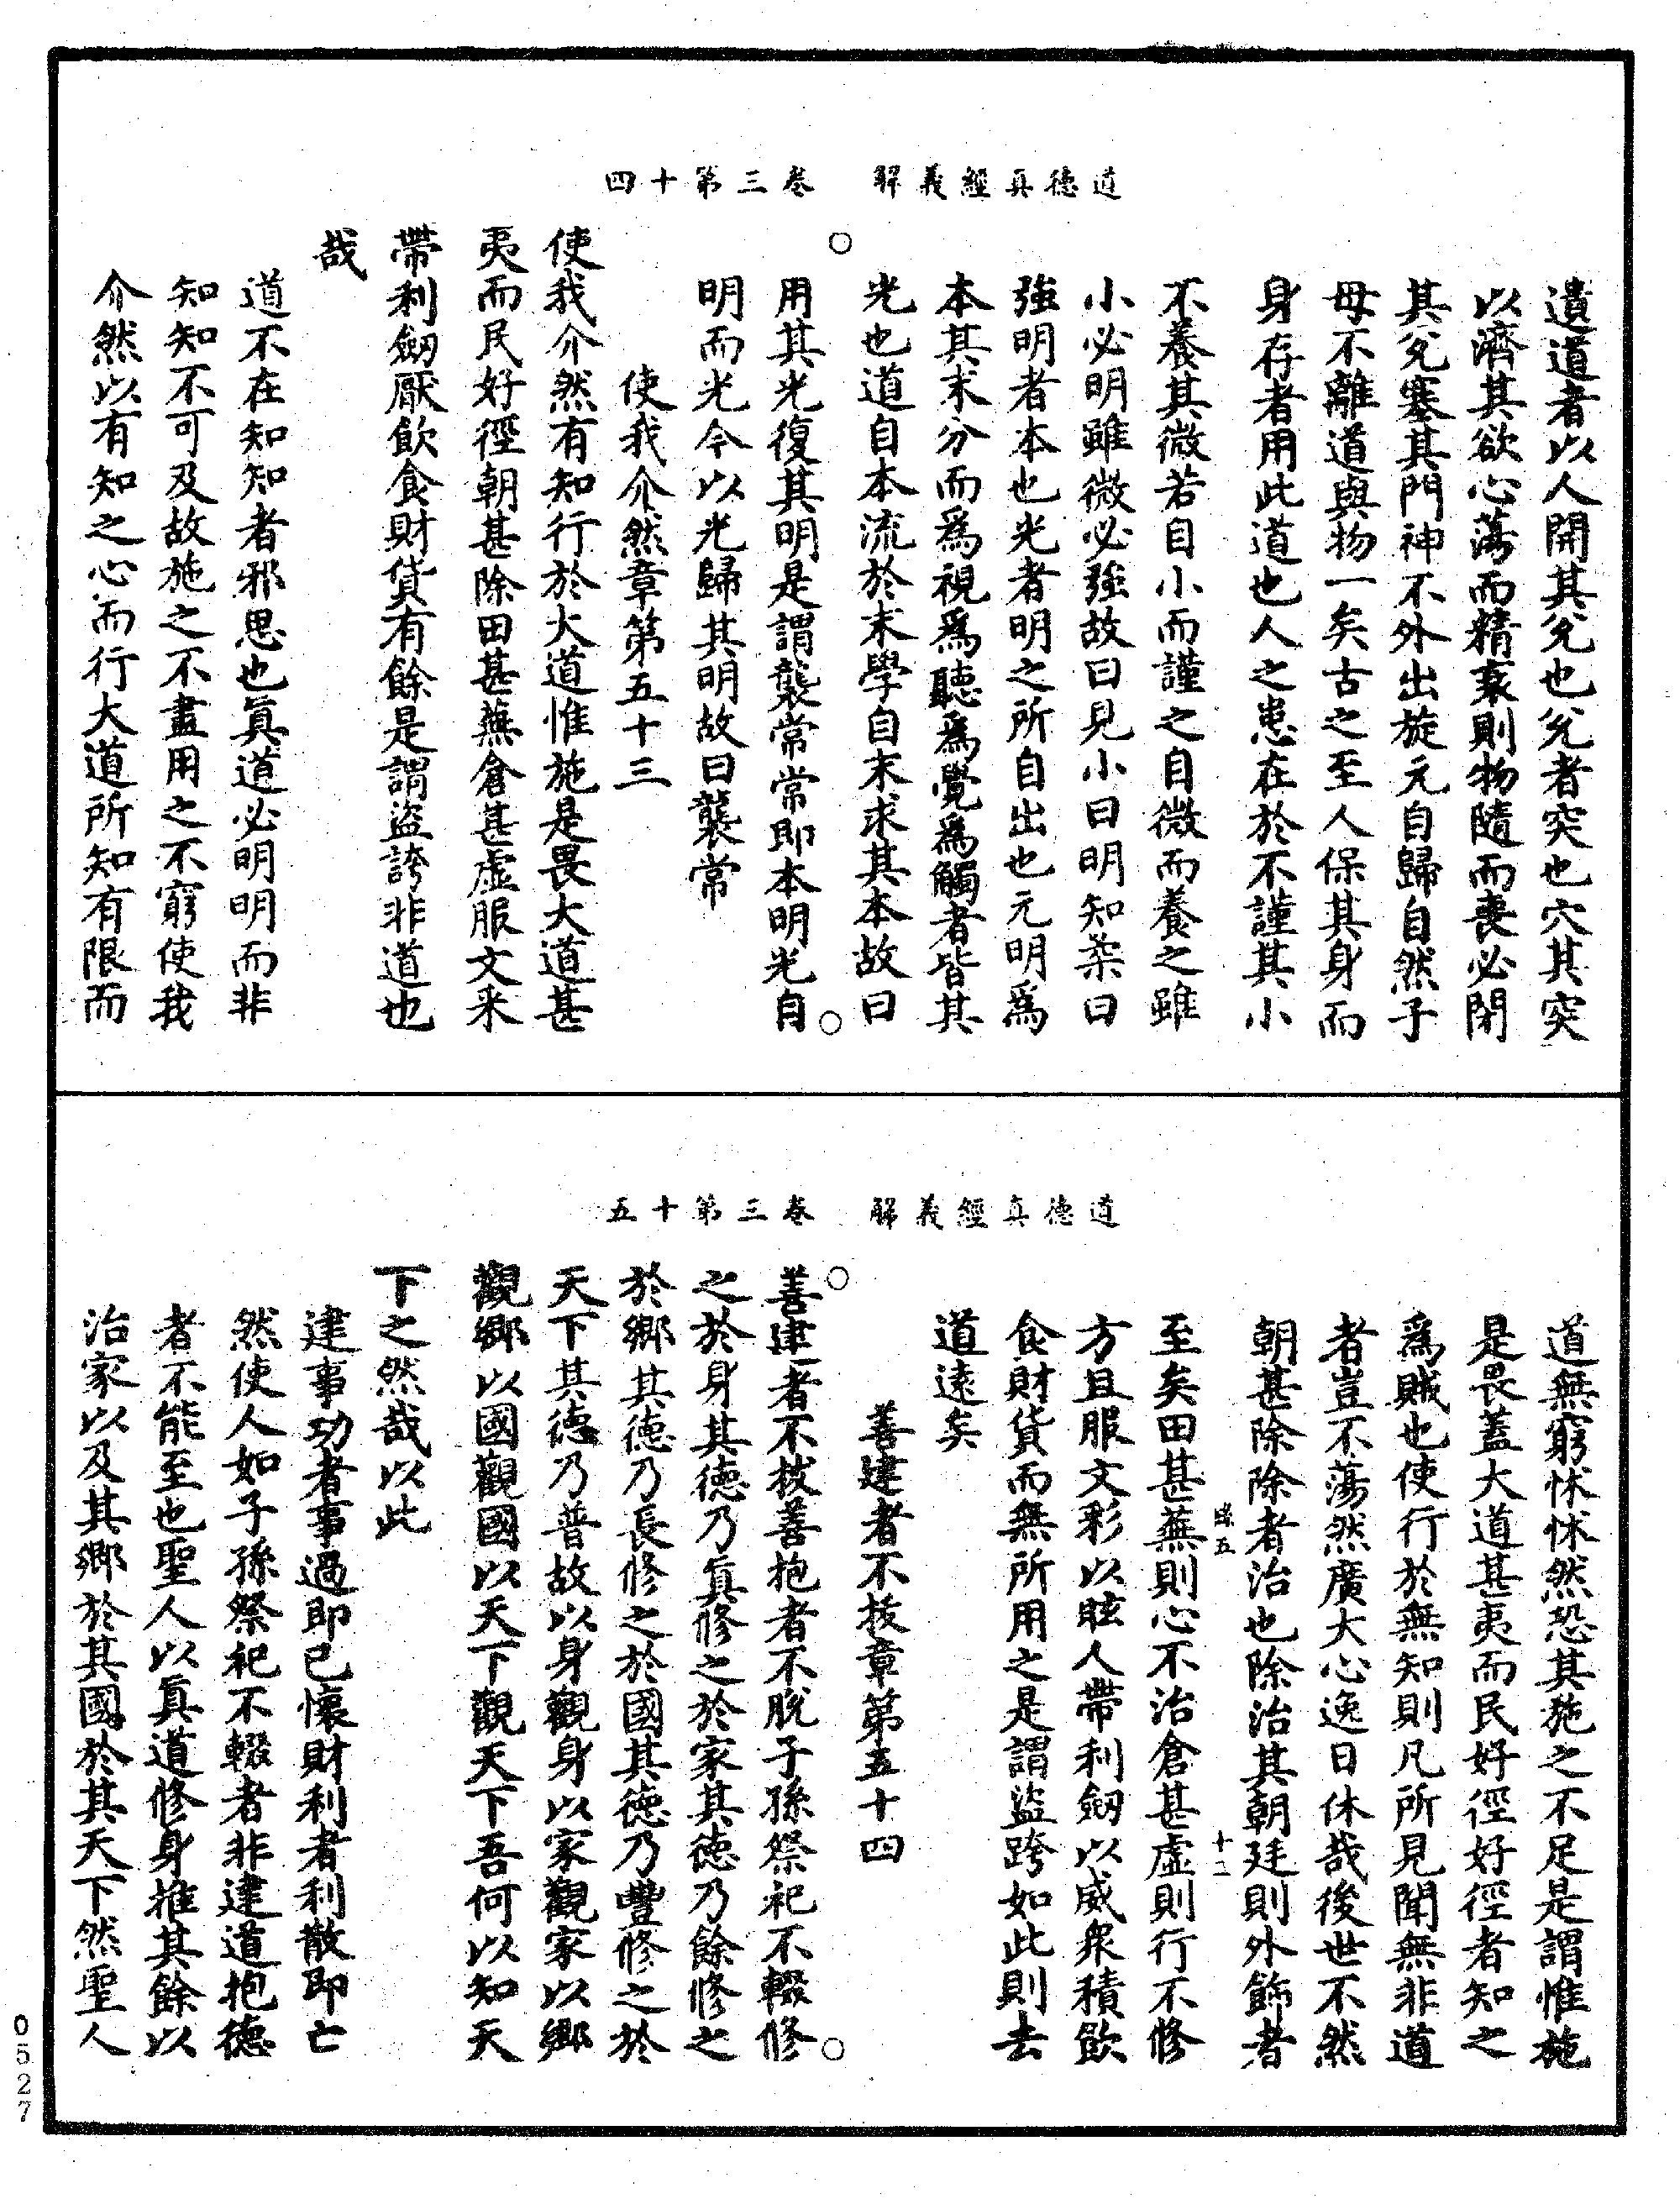 道德真經義解　卷三第十四
遺道者以人開其兊也兊者突也穴其突
以濟其欲心蕩而精衰則物隨而喪必閉
其兊塞其門神不外出旋元自歸自然子
母不離道與物一矣古之至人保其身而
身存者用此道也人之患在於不謹其小
不養其微若自小而謹之自微而養之雖
小必明雖微必強故曰見小曰明知柔曰
強明者本也光者明之所自出也元明爲
本其末分而爲視爲聽爲覺爲觸者皆其
光也道自本流於末學自末求其本故曰
用其光復其明是謂襲常常即本明光自
明而光今以光歸其明故曰襲常
使我介然章第五十三
使我介然有知行於大道惟施是畏大道甚
夷而民好徑朝甚除田甚蕪倉甚虛服文采
帶利劒厭飲食財貨有餘是謂盜誇非道也
哉
道不在知知者邪思也眞道必明明而非
知知不可及故施之不盡用之不窮使我
介然以有知之心而行大道所知有限而
道德真經義解　卷三第十五
道無窮怵怵然恐其施之不足是謂惟施
是畏蓋大道甚夷而民好徑好徑者知之
爲賊也使行於無知則凡所見聞無非道
者豈不蕩然廣大心逸日休哉後世不然
朝甚除除者治也除治其朝廷則外飾者
至矣田甚蕪則心不治倉甚虛則行不修
方且服文彩以眩人帶利劒以威衆積飲
食財貨而無所用之是謂盜跨如此則去
道遠矣
善建者不拔章第五十四
善建者不拔善抱者不脫子孫祭祀不輟修
之於身其德乃眞修之於家其德乃餘修之
於鄉其德乃長修之於國其德乃豐修之於
天下其德乃普故以身觀身以家觀家以鄉
觀鄉以國觀國以天下觀天下吾何以知天
下之然哉以此
建事功者事過即已懷財利者利散即亡
然使人如子孫祭祀不輟者非建道抱德
者不能至也聖人以眞道修身推其餘以
治家以及其鄉於其國於其天下然聖人
0527